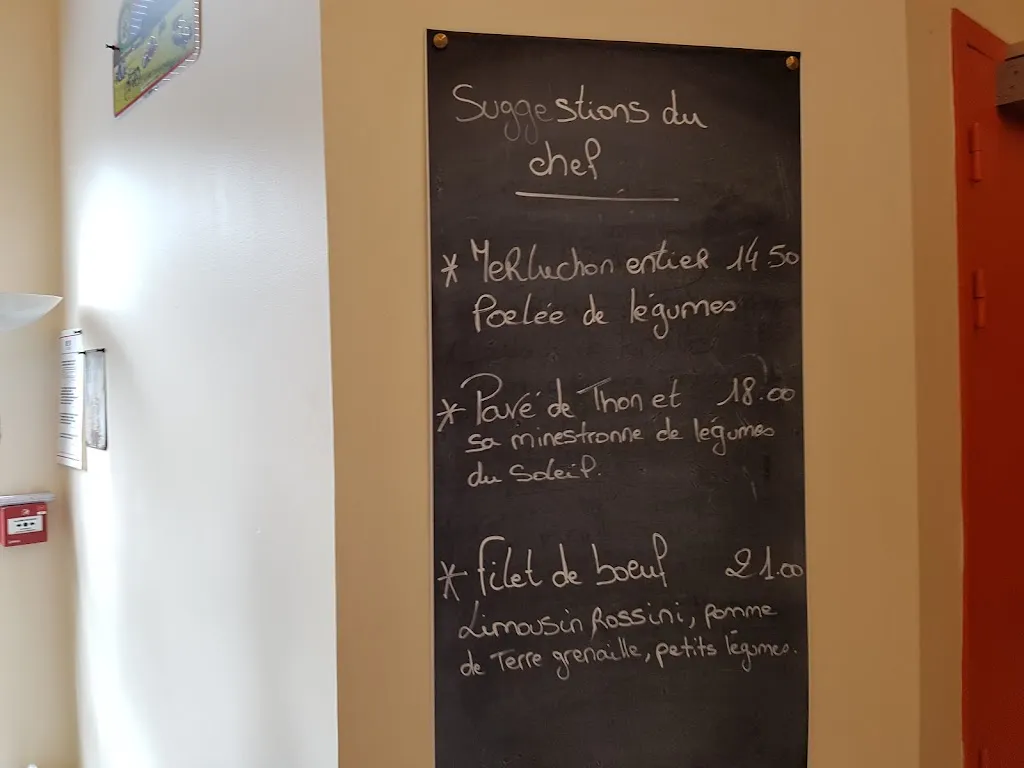 Suggestions du
chef
* Merluchon entier 14.50
Poelée de légumes
* Pavé de Thon et 18.00
sa minestronne de légumes
du Soleil.
* Filet de boeuf 21.00
Limousin Rossini, pomme
de Terre grenaille, petits légumes.